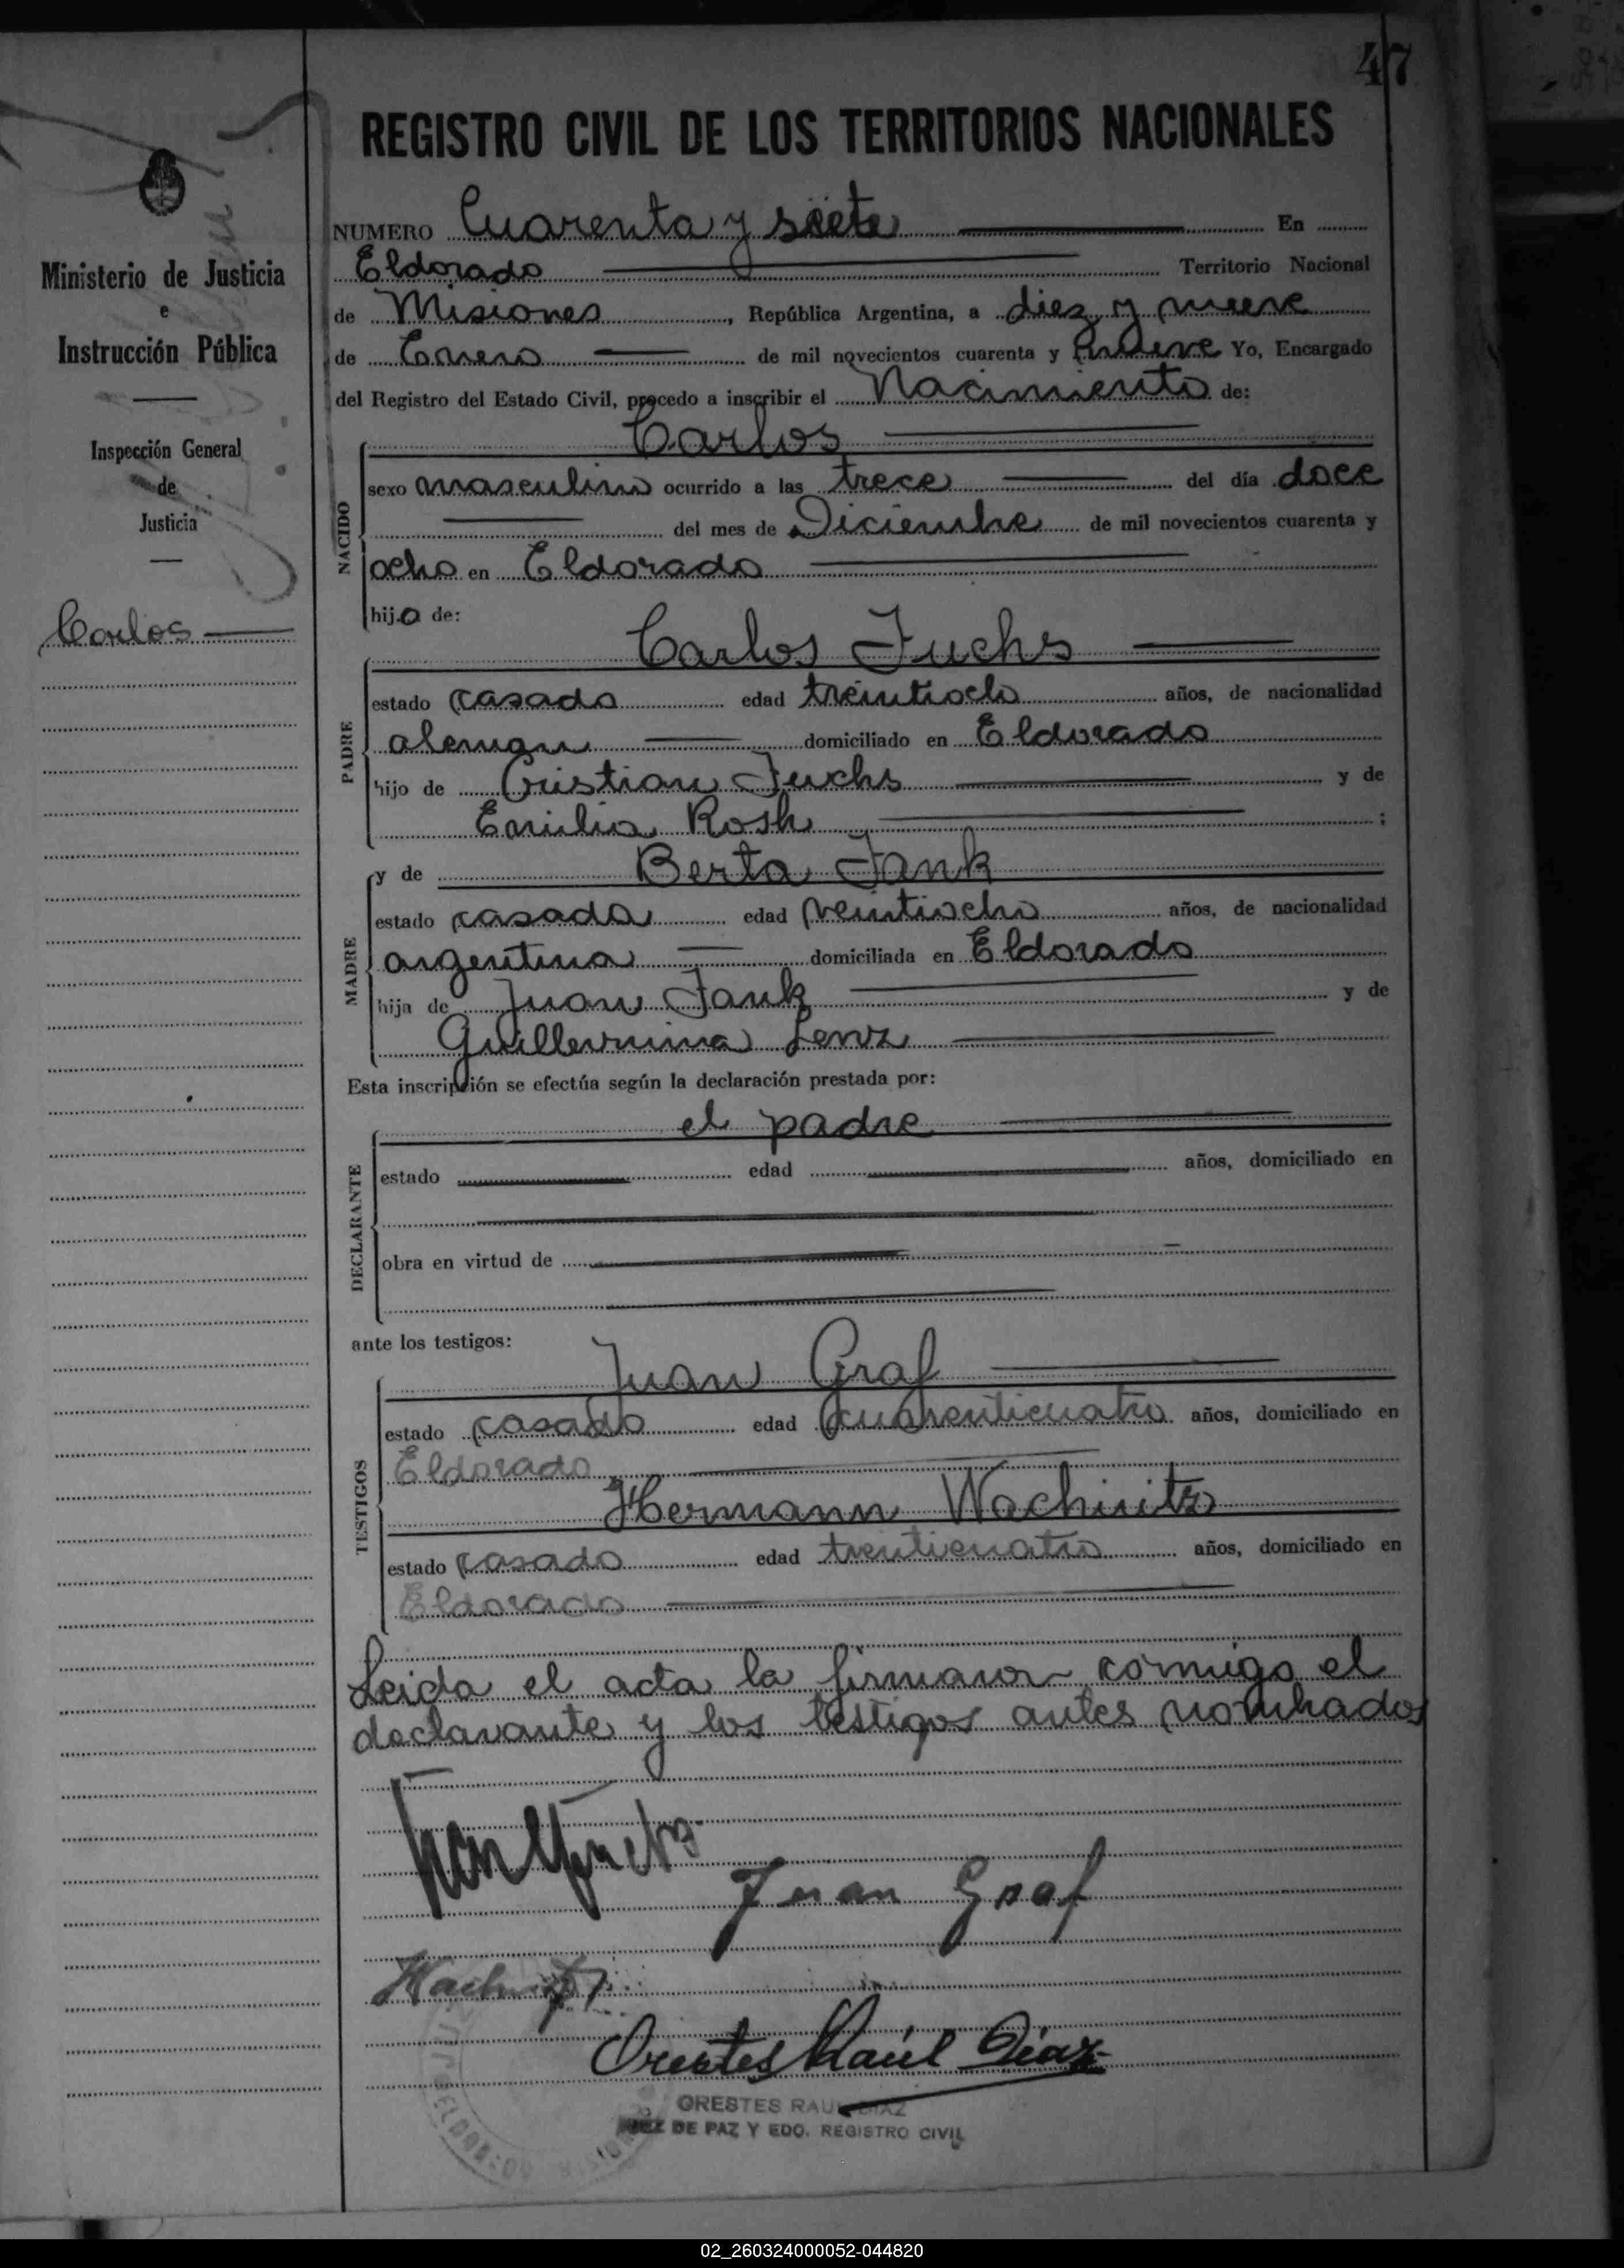 47
REGISTRO CIVIL DE LOS TERRITORIOS NACIONALES
Ministerio de Justicia
e
Instrucción Pública
Inspección General
de
Justicia
Carlos
NUMERO Cuarenta y siete En
Eldorado Territorio Nacional
de Misiones, República Argentina, a diez y nueve
de Enero de mil novecientos cuarenta y nueve Yo, Encargado
del Registro del Estado Civil, procedo a inscribir el Nacimiento de:
NACIDO
Carlos
sexo masculino ocurrido a las trece del día doce
del mes de Diciembre de mil novecientos cuarenta y
ocho en Eldorado
hijo de:
PADRE
Carlos Fuchs
estado casado edad treintiocho años, de nacionalidad
aleman domiciliado en Eldorado
hijo de Cristian Fuchs y de
Emilia Rosh ;
MADRE
y de Berta Jank
estado casada edad veintiocho años, de nacionalidad
argentina domiciliada en Eldorado
hija de Juan Jank y de
Guillermina Lenz
Esta inscripción se efectúa según la declaración prestada por:
DECLARANTE
el padre
estado edad años, domiciliado en
obra en virtud de
ante los testigos:
TESTIGOS
Juan Graf
estado casado edad cuarenticuatro años, domiciliado en
Eldorado
Hermann Wachnitz
estado casado edad trenticuatro años, domiciliado en
Eldorado
Leida el acta la firmaron comigo el
declarante y los testigos antes nombrados
Juan Graf
Orestes Raúl Díaz
ORESTES RAUL DIAZ
JUEZ DE PAZ Y EDO. REGISTRO CIVIL
02_260324000052-044820